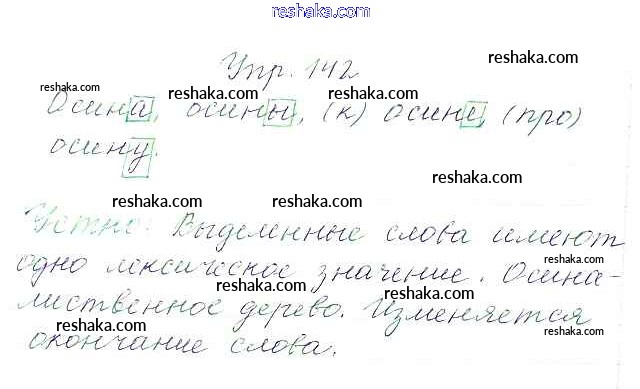 reshaka.com
Упр. 142
reshaka.com
reshaka.com reshaka.com reshaka.com
Осина, осины, (к) осине, (про)
осину.
reshaka.com
reshaka.com reshaka.com
Устно: Выделенные слова имеют
reshaka.com
одно лексическое значение. Осина-
reshaka.com reshaka.com
лиственное дерево. Изменяется
reshaka.com reshaka.com reshaka.com
окончание слова.